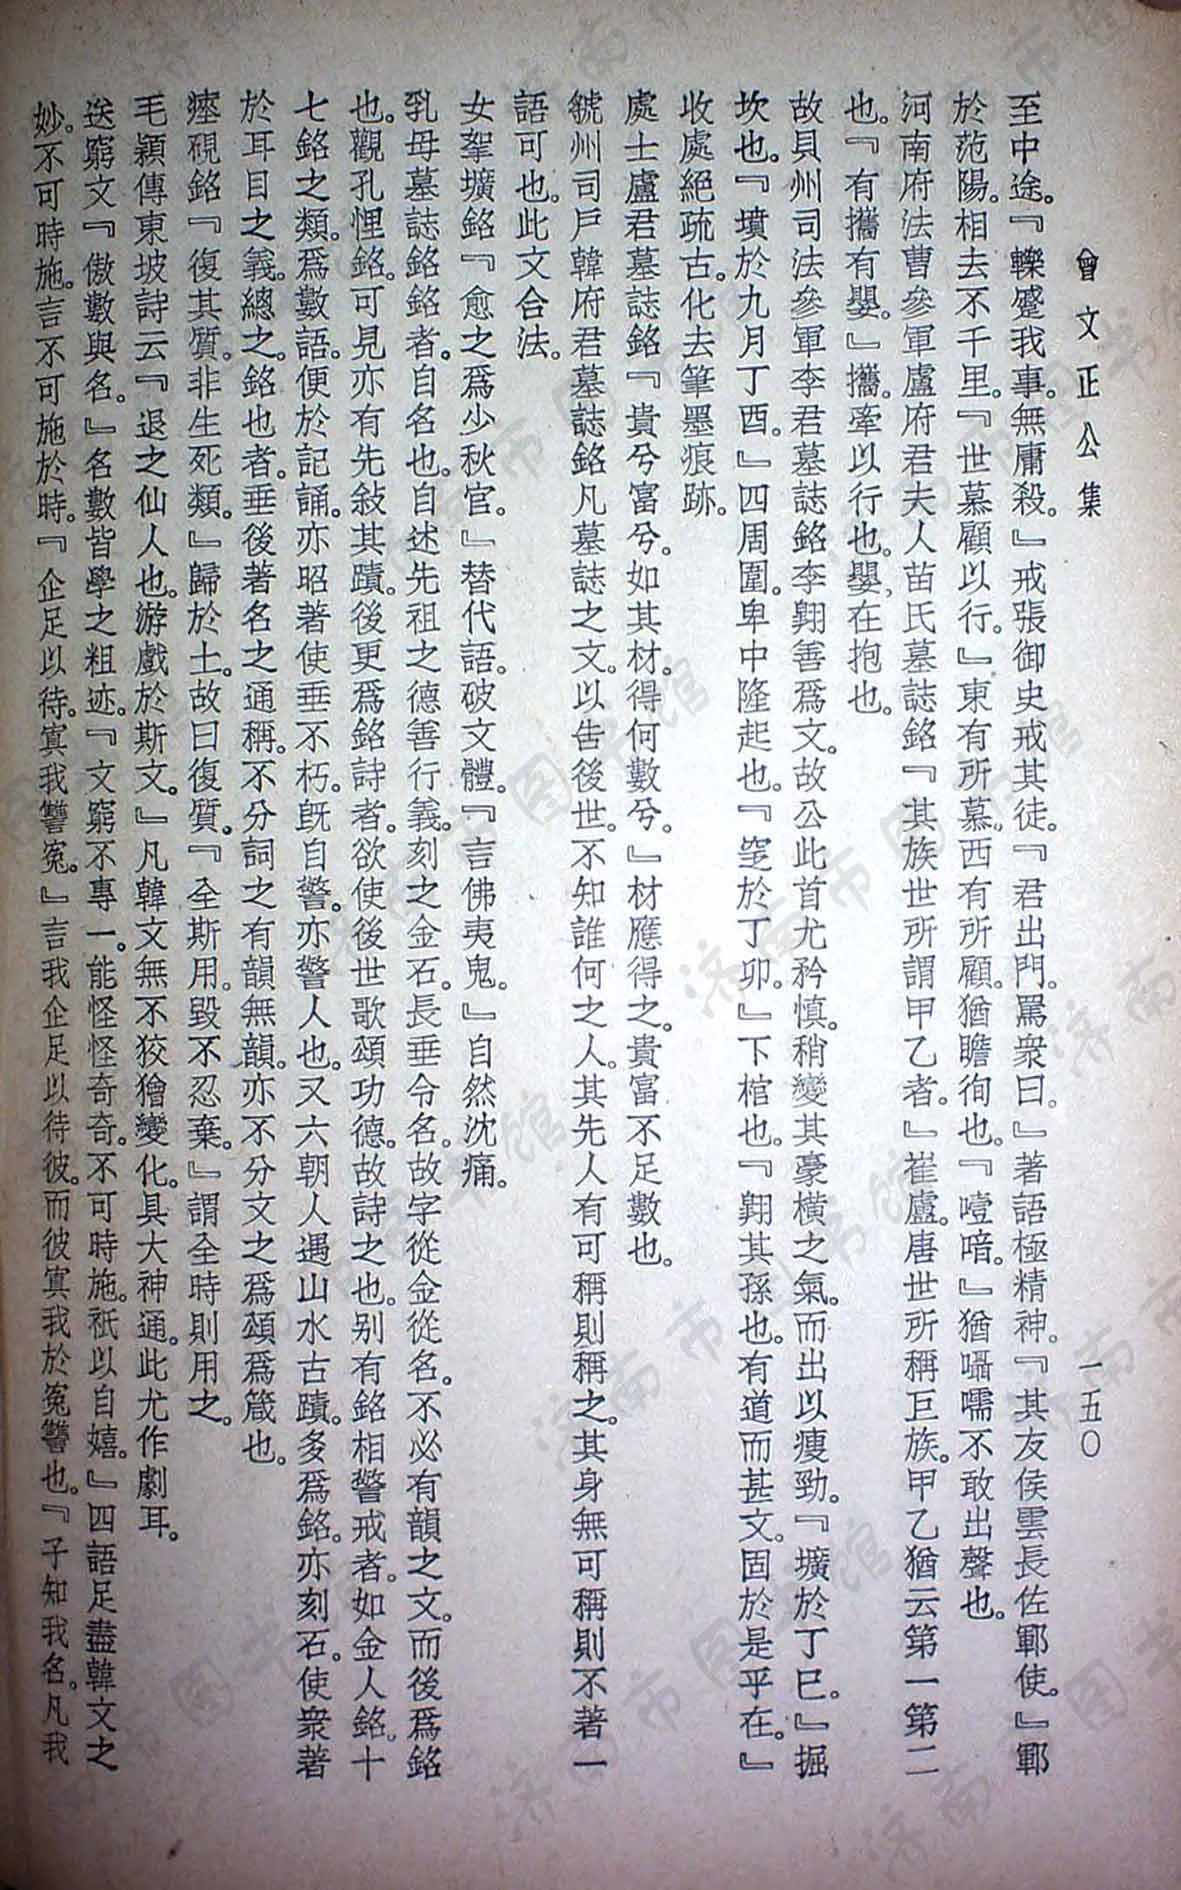 曾文正公集
一五〇
至中途。『轢蹙我事。無庸殺。』戒張御史戒其徒。『君出門。罵衆曰。』著語極精神。『其友侯雲長佐鄆使。』鄆
於范陽。相去不千里。『世慕顧以行。』東有所慕。西有所顧。猶瞻徇也。『噎喑。』猶囁嚅不敢出聲也。
河南府法曹參軍盧府君夫人苗氏墓誌銘『其族世所謂甲乙者。』崔盧。唐世所稱巨族。甲乙猶云第一第二
也。『有攜有嬰。』攜。牽以行也。嬰。在抱也。
故貝州司法參軍李君墓誌銘李翺善爲文。故公此首尤矜慎。稍變其豪橫之氣。而出以瘦勁。『壙於丁巳。』掘
坎也。『墳於九月丁酉。』四周圍。卑中隆起也。『窆於丁卯。』下棺也。『翺其孫也。有道而甚文。固於是乎在。』
收處絕疏古。化去筆墨痕跡。
處士盧君墓誌銘『貴兮富兮。如其材。得何數兮。』材應得之。貴富不足數也。
虢州司戶韓府君墓誌銘凡墓誌之文。以告後世。不知誰何之人。其先人有可稱則稱之。其身無可稱則不著一
語可也。此文合法。
女挐壙銘『愈之爲少秋官。』替代語。破文體。『言佛夷鬼。』自然沈痛。
乳母墓誌銘銘者。自名也。自述先祖之德善行義。刻之金石。長垂令名。故字從金從名。不必有韻之文。而後爲銘
也。觀孔悝銘。可見亦有先敍其蹟。後更爲銘詩者。欲使後世歌頌功德。故詩之也。别有銘相警戒者。如金人銘。十
七銘之類。爲數語。便於記誦。亦昭著使垂不朽。既自警。亦警人也。又六朝人遇山水古蹟。多爲銘。亦刻石。使衆著
於耳目之義。總之。銘也者。垂後著名之通稱。不分詞之有韻無韻。亦不分文之爲頌爲箴也。
瘞硯銘『復其質。非生死類。』歸於土。故曰復質。『全斯用。毀不忍棄。』謂全時則用之。
毛穎傳東坡詩云『退之仙人也。游戲於斯文。』凡韓文無不狡獪變化。具大神通。此尤作劇耳。
送窮文『傲數與名。』名數皆學之粗迹。『文窮不專一。能怪怪奇奇。不可時施。祇以自嬉。』四語足盡韓文之
妙。不可時施。言不可施於時。『企足以待。寘我讐冤。』言我企足以待彼。而彼寘我於冤讐也。『子知我名。凡我